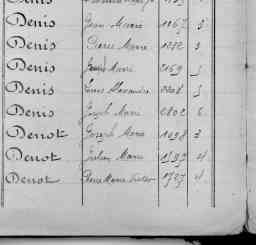 Denis Jean Marie 1167 5
Denis Pierre Marie 1232 5
Denis Marie 2169 5
Denis Louis Alexandre 5
Denis Joseph Marie 2802 6
Denot Joseph Marie 1098 3
Denot Julien Marie 4
Denot Pierre Marie Victor 1727 4